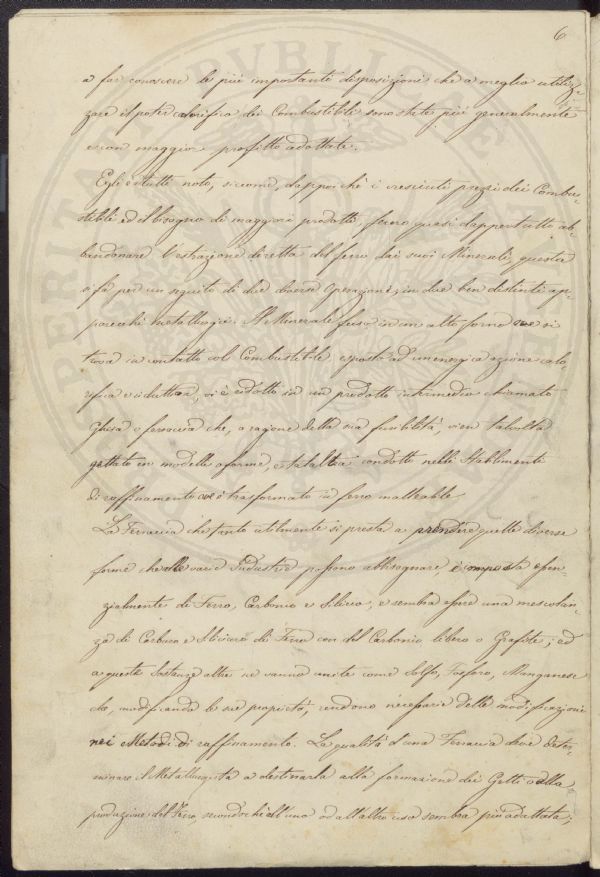 6
a far conoscere le più importanti disposizioni che a meglio utiliz-
zare il poter calorifico dei Combustibili sono state più generalmente
e con maggior profitto adottate.
Egli è a tutti noto, siccome, dappoichè i cresciuti prezzi dei Combu-
stibili ed il bisogno di maggiori prodotti, fecero quasi dappertutto ab-
bandonare l'estrazione diretta del ferro dai suoi Minerali, questa
si fa per un seguito di due diverse operazioni, in due ben distinti ap-
parecchi metallurgici. Il Minerale fuso in un alto forno ove si
trova in contatto col Combustibile, esposto ad un energica azione calo,
rifica e riduttiva, si è ridotto in un prodotto intermedio chiamato
Ghisa o ferraccia che, a ragione della sua fusibilità, vien talvolta
gettato in modelli o forme, e tal altra condotto nelli Stabilimenti
di raffinamento ove è trasformato in ferro malleabile.
La Ferraccia che tanto utilmente si presta a prendere quelle diverse
forme che alle varie Industrie possono abbisognare, è composta essen-
zialmente di Ferro, Carbonio e Silicio, e sembra essere una mescolan-
za di Carburo e Siliciuro di Ferro con del Carbonio libero o Grafite; ed
a queste Sostanze altre se vanno unite come Solfo, Fosforo, Manganese
che, modificando le sue proprietà, rendono necessarie delle modificazioni
nei Metodi di raffinamento. La qualità d'una Ferraccia deve deter-
minare il Metallurgista a destinarla alla formazione dei Getti o alla
produzione del Ferro, secondochè all'uno od all'altro uso sembra più adattata;
PVBLICAE
PROSPERITATI